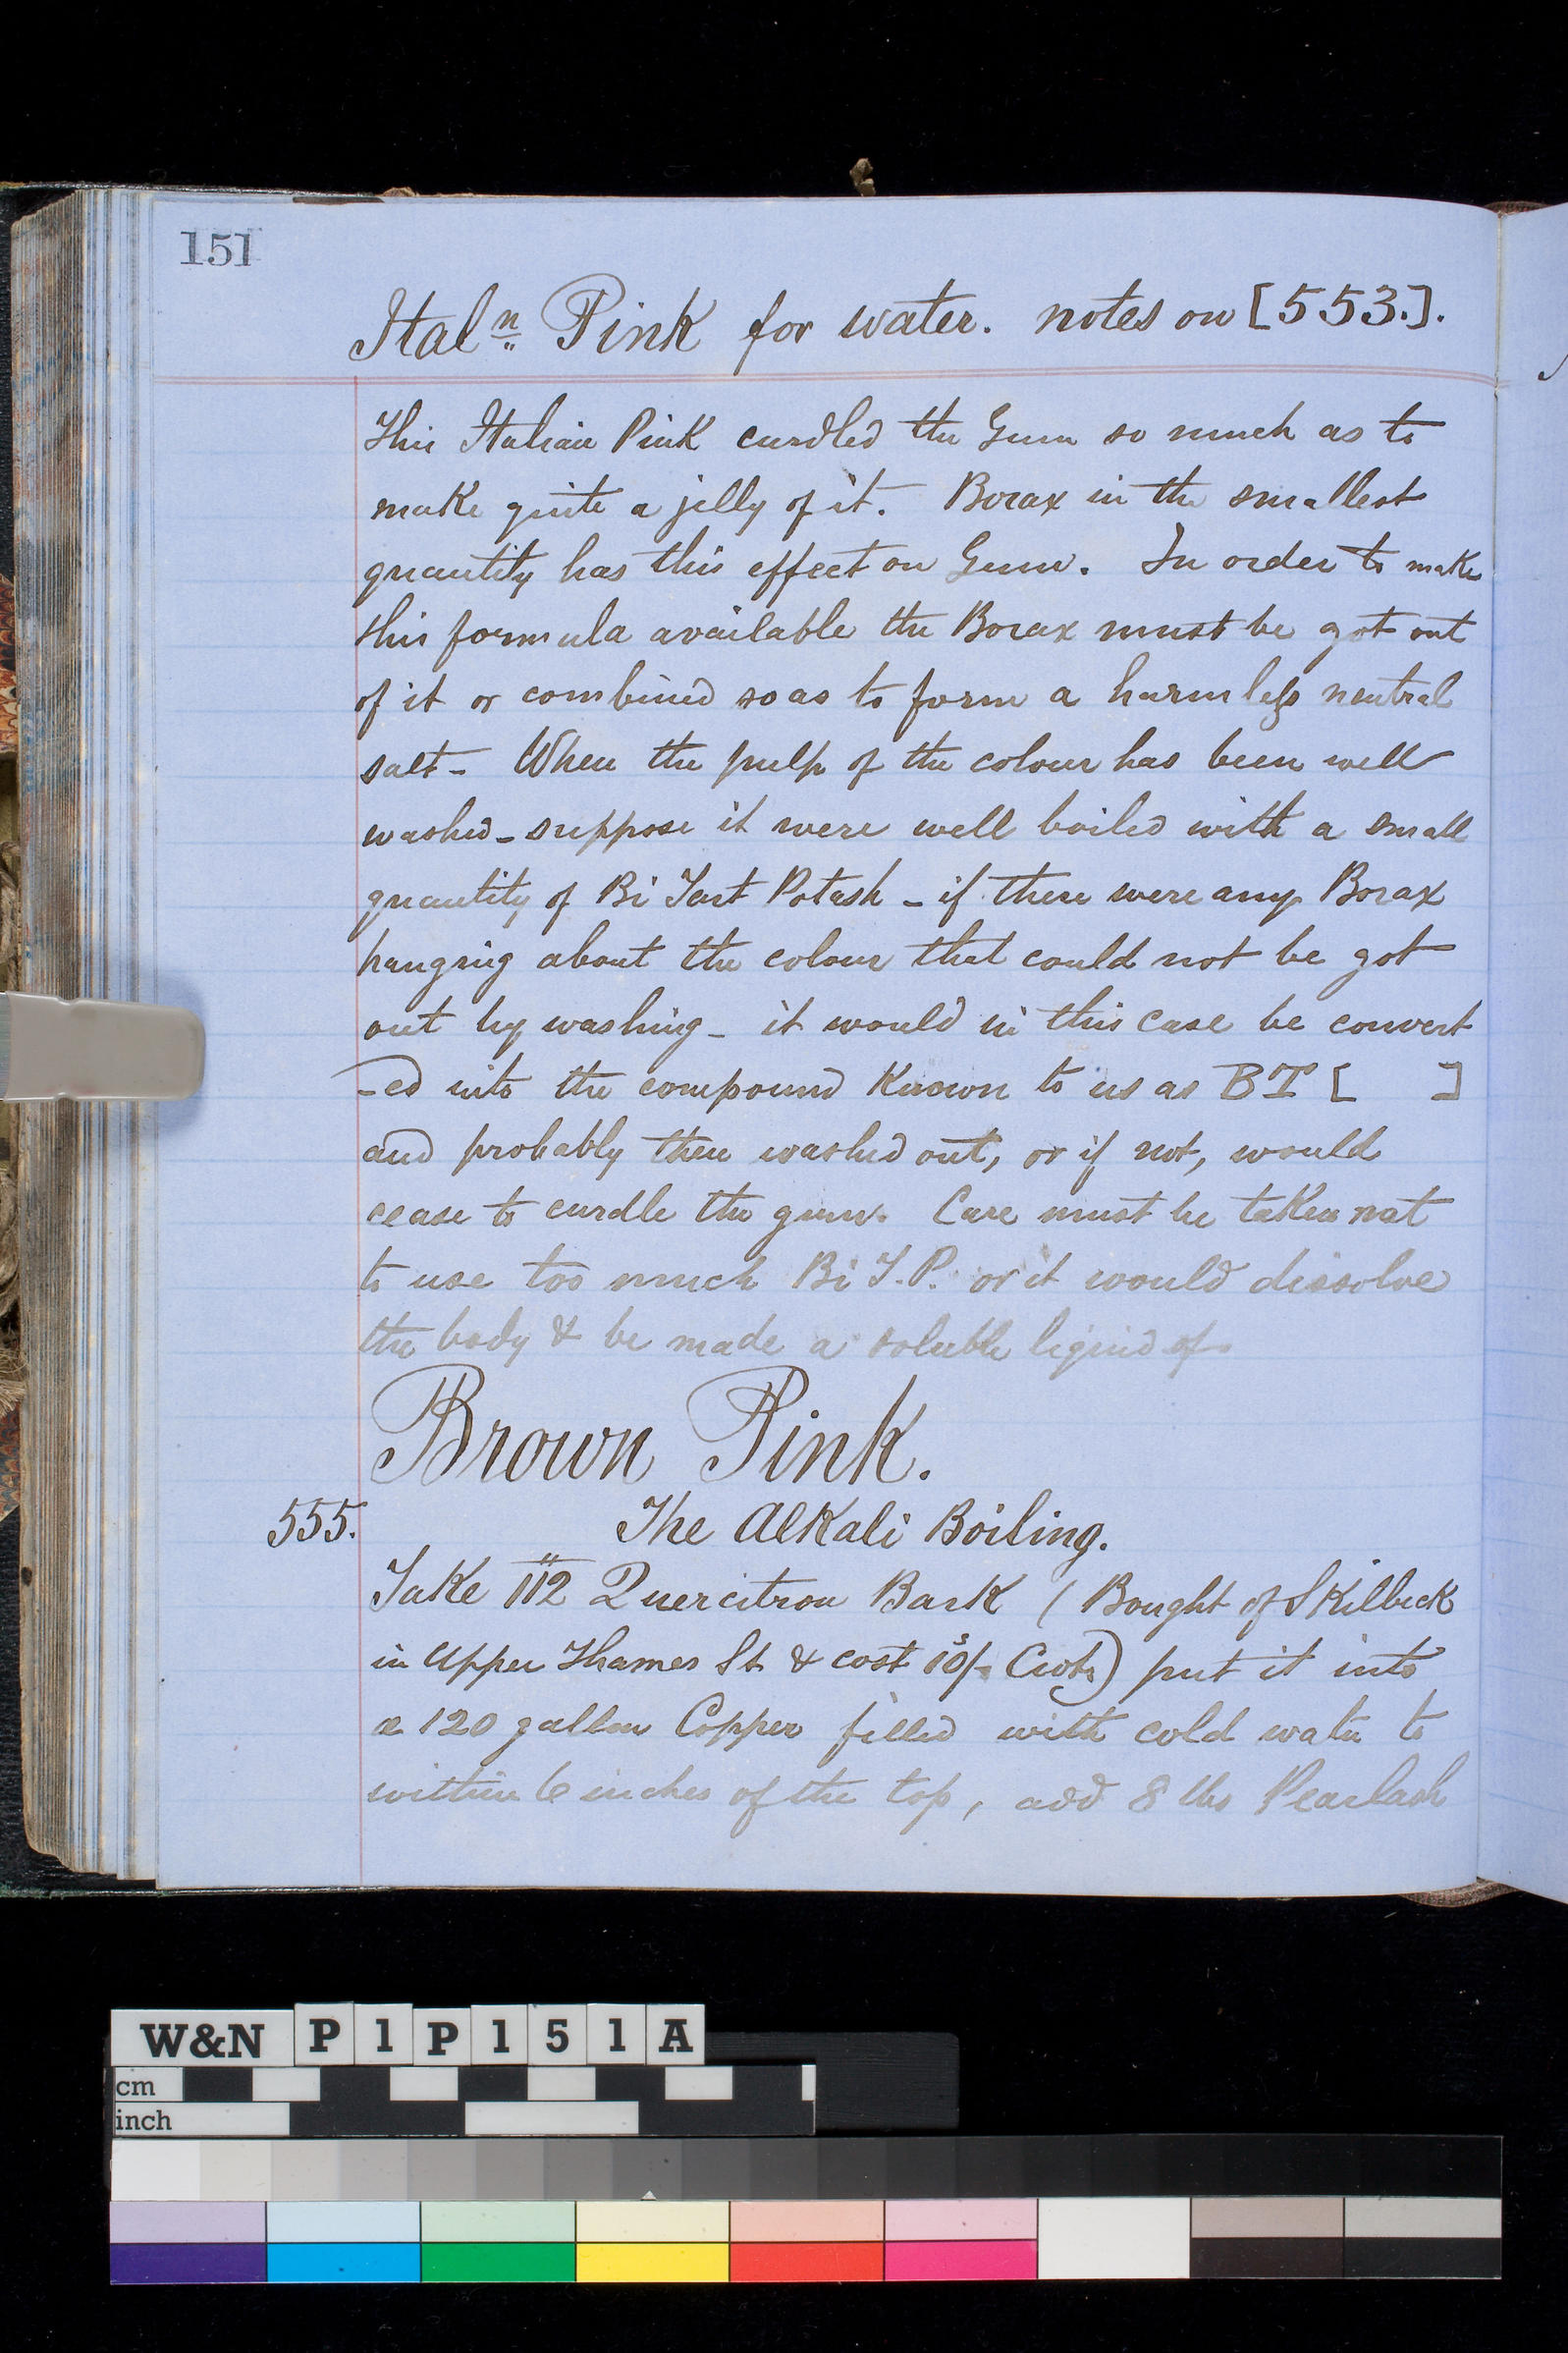 151
Ital.n Pink for water. notes on [553.].
This Italian Pink curdled the Gum so much as to
make quite a jelly of it. Borax in the smallest
quantity has this effect on Gum. In order to make
this formula available the Borax must be got out
of it or combined so as to form a harmless neutral
salt - When the pulp of the colour has been well
washed - suppose it were well boiled with a small
quantity of Bi Tart Potash - if there were any Borax
hanging about the colour that could not be got
out by washing - it would in this case be convert
-ed into the compound Known to us as BT [ ]
and probably then washed out, or if not, would
cease to curdle the gum. Care must be taken not
to use too much Bi T.P. or it would dissolve
the body & be made a soluble liquid of.
Brown Pink.
555. The Alkali Boiling.
Take 112 Quercitron Bark (Bought of Skilbeck
in Upper Thames St & cost Cwt.) put it into
a 120 gallon Copper filled with cold water to
within 6 inches of the top, add 8 lbs Pearlash
W&N P1P151A
cm
inch